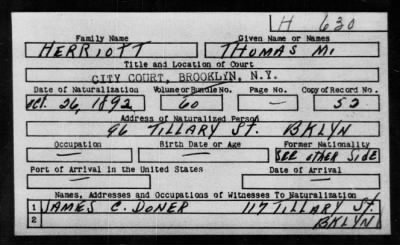 H 630
Family Name Given Name or Names
HERRIOTT THOMAS M.
Title and Location of Court
CITY COURT, BROOKLYN, N.Y.
Date of Naturalization Volume or Bundle No. Page No. Copy of Record No.
Oct. 26, 1892 60 — 52
Address of Naturalized Person
96 TILLARY ST. BKLYN
Occupation Birth Date or Age Former Nationality
— — SEE OTHER SIDE
Port of Arrival in the United States Date of Arrival
— —
Names, Addresses and Occupations of Witnesses To Naturalization
1 JAMES C. DONER 117 TILLARY ST.
2 BKLYN